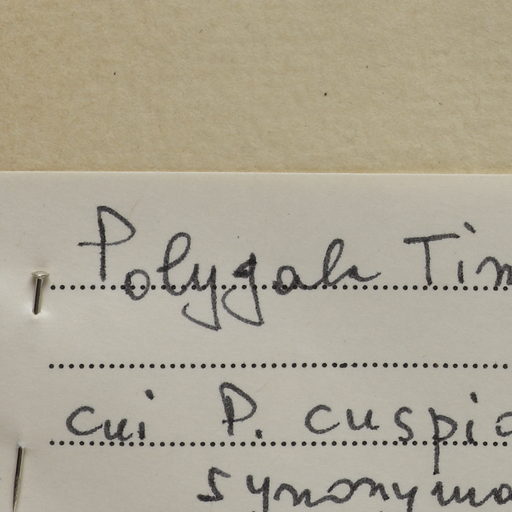 Polygala Tim
cui P. cuspid
synonyma